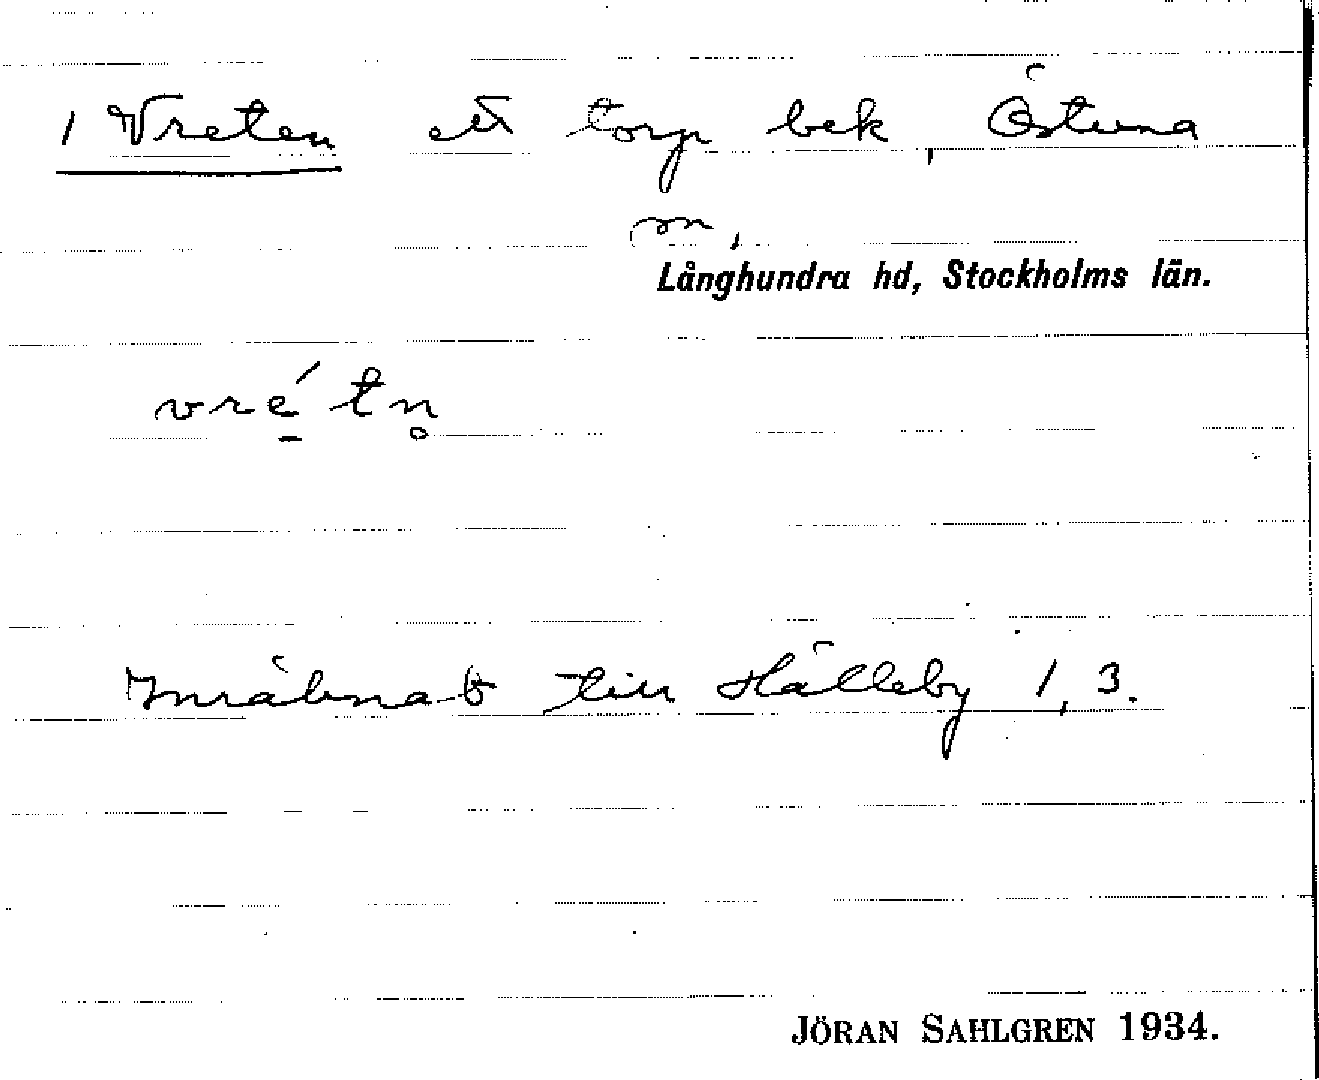 1 Vreten ett torp bek, Östuna
sn,
Långhundra hd, Stockholms län.
vre̱´tn̥
Inräknat till Hälleby 1, 3.
JÖRAN SAHLGREN 1934.